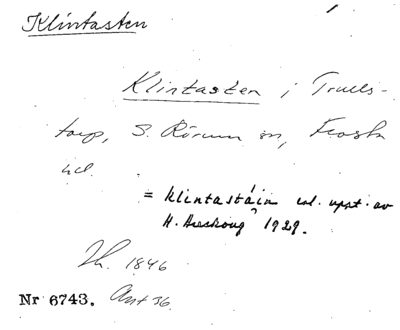 Klintasten
Klintasten i Truels-
torp, S. Rörum sn, Frosta
hd.
= Klintastáin enl. uppt. av
H. Areskoug 1929.
Th. 1846
Nr 6743. Ant 36